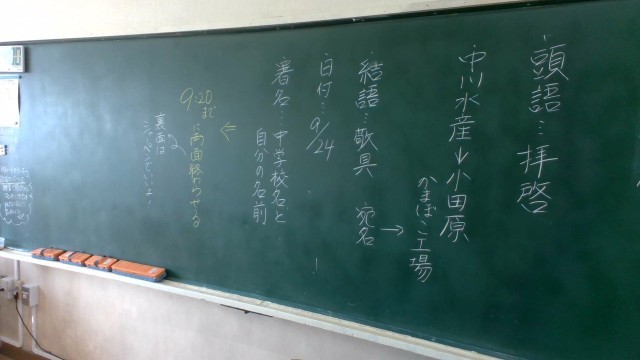 ・頭語…拝啓
・中川水産→小田原
かまぼこ工場
・結語…敬具 宛名→
・日付…9/24
・署名…中学校名と
自分の名前
⇐
9:20までに両面終わらせる
裏面は
シャーペンでいいよ!